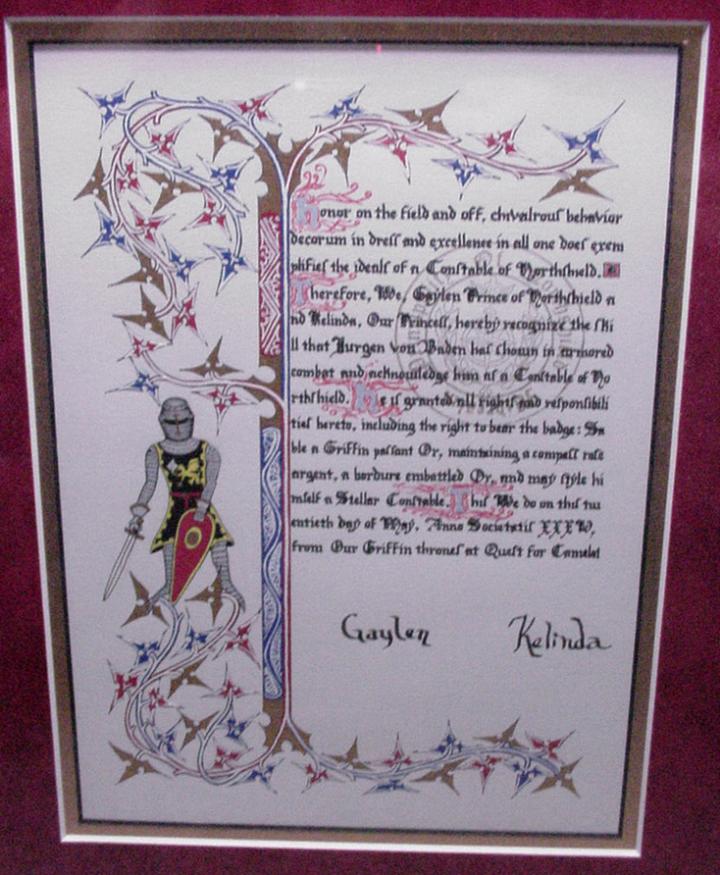 Honor on the field and off, chivalrous behavior
decorum in dreſſ and excellence in all one doeſ exem
plifieſ the idealſ of a Conſtable of Northſhield.
Therefore, We, Gaylen Prince of Northſhield a
nd Kelinda, Our Princeſſ, hereby recognize the ſki
ll that Jurgen von Baden haſ ſhown in armored
combat and acknowledge him aſ a Conſtable of No
rthſhield. He iſ granted all rightſ and reſponſibili
tieſ hereto, including the right to bear the badge: Sa
ble a Griffin paſſant Or, maintaining a compaſſ roſe
argent, a bordure embattled Or, and may ſtyle hi
mſelf a Stellar Conſtable. Thiſ We do on thiſ tw
entieth day of May, Anno Societatiſ XXXV,
from Our Griffin throneſ at Queſt for Camelot
Gaylen Kelinda